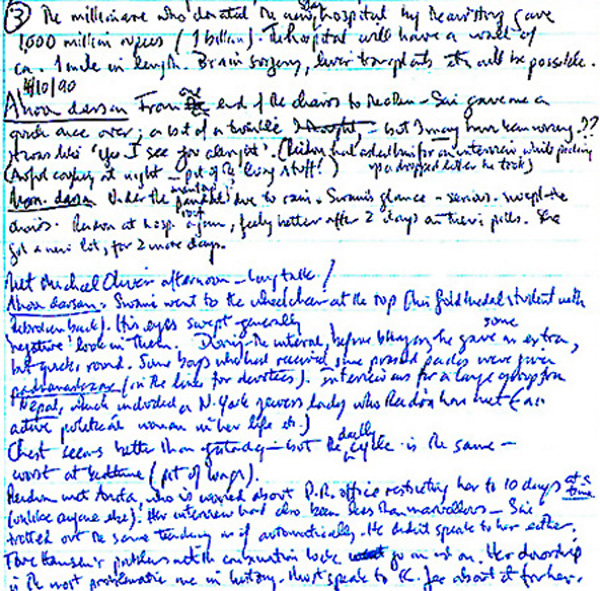 ③ The millionaire who donated the new hospital by the airstrip gave
1,000 million rupees (1 billion). The hospital will have a ward of
ca. 1 mile in length. Brain surgery, liver transplants etc. will be possible.
4/10/90
darsan From one end of the chairs to the other – Sai gave me a
once over; a bit of a twinkle I thought, – but I may have been wrong.??
'Yes I see you alright'. (Reidun had asked him for an interview while
(Awful coughing at night – pit of the lung stuff!) up a dropped letter he took)
darsan Under the due to rain. Swami's glance – serious. the
chairs. Reidun at hosp. again, feeling better after 2 days on their pills. She
got a new lot, for 2 more days.
Met Michael Oliver afternoon – long talk!
darsan. Swami went to the wheelchair at the top (his gold medal student with
the broken back). His eyes swept generally
'negative' look in them. During the interval, before bhajans he gave an extra, some
but quick, round. Some boys who had received some pressed packs were given
padnamaskar (in the lines for devotees). Interviews for a large group from
Nepal, which included a N. York lady who Reidun has met (an
active political woman in her life etc.)
Chest seems better than – but the daily cycle is the same –
worst at bedtime (pit of lungs).
Reidun met Anita, who is worried about P.R. office restricting her to 10 days at a time
(unlike anyone else). Her interview had also been less than marvellous – Sai
trotted out the same as if automatically. He didn't speak to her either.
Tove Hansen's problems with the book go on and on. Her
is the most problematic one in history. Must speak to K. about it for her.